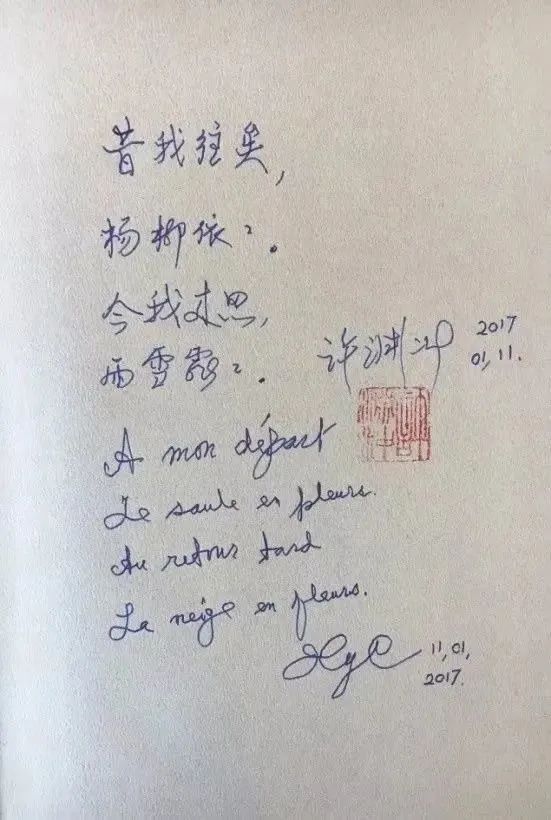 昔我往矣,
杨柳依〻.
今我来思,
雨雪霏〻.
许渊冲 2017
01,11.
A mon départ
Le saule en pleurs.
Au retour tard
La neige en fleurs.
11,01,
2017.